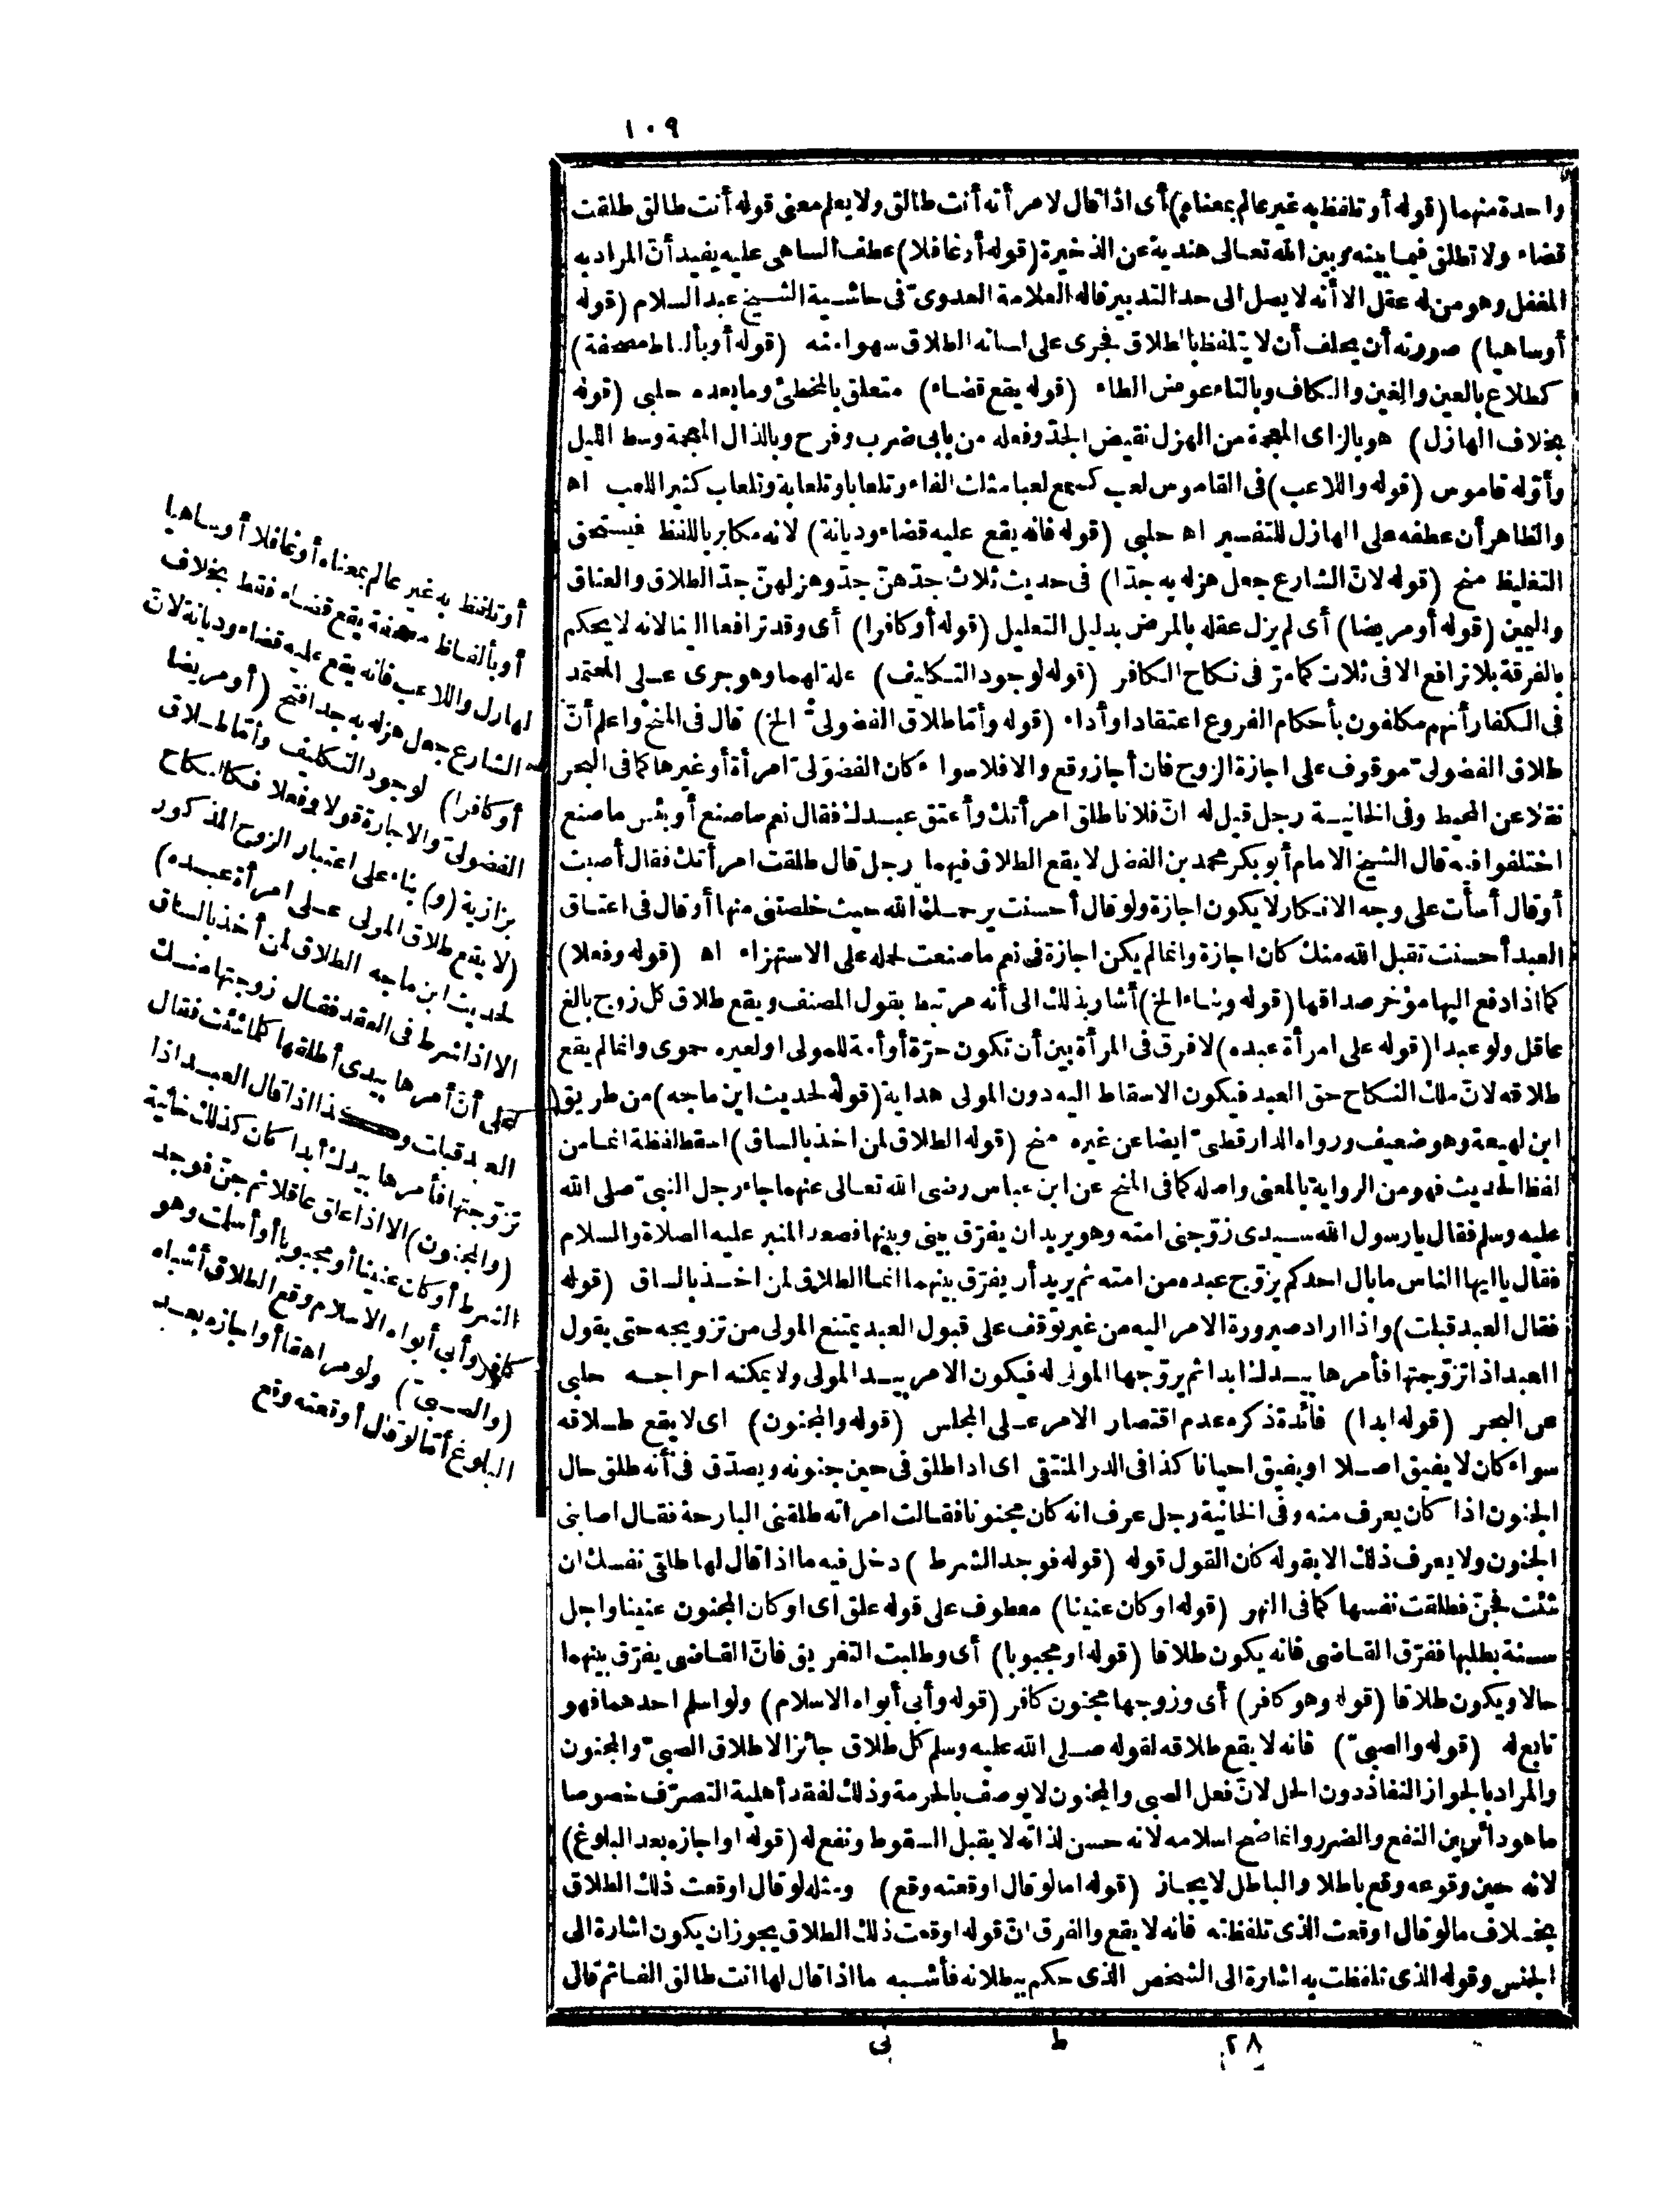 ١٠٩
واحدة منهما (قوله أو تلفظ به غير عالم بمعناه) أى اذا قال لامرأته أنت طالق ولا يعلم معنى قوله أنت طالق طلقت
قضاء ولا تطلق فيما بينه وبين الله تعالى هندية عن الذخيرة (قوله أو غافلا) عطف الساهى عليه يفيد أنّ المراد به
المغفل وهو من له عقل الا أنه لا يصل الى حد التدبير قاله العلامة العدوىّ فى حاشية الشيخ عبد السلام (قوله
أوساهيا) صورته أن يحلف أن لا يتلفظ بالطلاق فجرى على لسانه الطلاق سهوا منه (قوله أو بألفاظ مصحفة)
كطلاع بالعين والغين والكاف وبالتاء عوض الطاء (قوله يقع قضاء) متعلق بالمخطئ وما بعده حلبى (قوله
بخلاف الهازل) هو بالزاى المعجمة من الهزل نقيض الجدّ وفعله من بابى ضرب وفرح وبالذال المعجمة وسط الليل
وأوّله قاموس (قوله واللاعب) فى القاموس لعب كسمع لعبا مثلث الفاء وتلعابا وتلعابة وتلعاب كثير اللعب اه
والظاهر أن عطفه على الهازل للتفسير اه حلبى (قوله فانه يقع عليه قضاء وديانة) لانه مكابر باللفظ فيستحق
التغليظ منح (قوله لانّ الشارع جعل هزله به جدّا) فى حديث ثلاث جدّهنّ جدّ وهزلهنّ جدّ الطلاق والعتاق
واليمين (قوله أو مريضا) أى لم يزل عقله بالمرض بدليل التعليل (قوله أو كافرا) أى وقد ترافعا الينا لانه لا يحكم
بالفرقة بلا ترافع الا فى ثلاث كما مرّ فى نكاح الكافر (قوله لوجود التكليف) علة لهما وهو جرى على المعتمد
فى الكفار أنهم مكلفون بأحكام الفروع اعتقادا وأداء (قوله وأمّا طلاق الفضولىّ الخ) قال فى المنح واعلم أنّ
طلاق الفضولىّ موقوف على اجازة الزوج فان أجاز وقع والا فلا سواء كان الفضولىّ امرأة أو غيرها كما فى البحر
نقلا عن المحيط وفى الخانية رجل قيل له انّ فلانا طلق امرأتك وأعتق عبدك فقال نعم ما صنع أو بئس ما صنع
اختلفوا فيه قال الشيخ الامام أبو بكر محمد بن الفضل لا يقع الطلاق فيهما رجل قال طلقت امرأتك فقال أصبت
أو قال أسأت على وجه الانكار لا يكون اجازة ولو قال أحسنت يرحمك الله حيث خلصتنى منها أو قال فى اعتاق
العبد أحسنت تقبل الله منك كان اجازة وانما لم يكن اجازة فى نعم ما صنعت لحمله على الاستهزاء اه (قوله وفعلا)
كما اذا دفع اليها مؤخر صداقها (قوله وبناء الخ) أشار بذلك الى أنه مرتبط بقول المصنف ويقع طلاق كل زوج بالغ
عاقل ولو عبدا (قوله على امرأة عبده) لا فرق فى المرأة بين أن تكون حرّة أو أمة للمولى او لغيره حموى وانما لم يقع
طلاقه لانّ ملك النكاح حق العبد فيكون الاسقاط اليه دون المولى هداية (قوله لحديث ابن ماجه) من طريق
ابن لهيعة وهو ضعيف ورواه الدارقطنىّ ايضا عن غيره منح (قوله الطلاق لمن اخذ بالساق) اسقط لفظة انما من
لفظ الحديث فهو من الرواية بالمعنى واصله كما فى المنح عن ابن عباس رضى الله تعالى عنهما جاء رجل النبىّ صلى الله
عليه وسلم فقال يا رسول الله سيدى زوّجنى امته وهو يريد ان يفرّق بينى وبينها فصعد المنبر عليه الصلاة والسلام
فقال يا ايها الناس ما بال احدكم يزوّج عبده من امته ثم يريد أن يفرّق بينهما انما الطلاق لمن اخذ بالساق (قوله
فقال العبد قبلت) واذا اراد صيرورة الامر اليه من غير توقف على قبول العبد يمتنع المولى من تزويجه حتى يقول
العبد اذا تزوّجتها فأمرها بيدك ابدا ثم يزوّجها المولى له فيكون الامر بيد المولى ولا يمكنه اخراجه حلبى
عن البحر (قوله ابدا) فائدة ذكره عدم اقتصار الامر على المجلس (قوله والمجنون) اى لا يقع طلاقه
سواء كان لا يفيق اصلا او يفيق احيانا كذا فى الدر المنتقى اى اذا طلق فى حين جنونه ويصدّق فى أنه طلق حال
الجنون اذا كان يعرف منه وفى الخانية رجل عرف انه كان مجنونا فقالت امراته طلقتنى البارحة فقال اصابنى
الجنون ولا يعرف ذلك الا بقوله كان القول قوله (قوله فوجد الشرط) دخل فيه ما اذا قال لها طلقى نفسك ان
شئت فجنّ فطلقت نفسها كما فى النهر (قوله او كان عنينا) معطوف على قوله علق اى او كان المجنون عنينا واجل
سنة بطلبها ففرّق القاضى فانه يكون طلاقا (قوله او مجبوبا) أى وطلبت التفريق فانّ القاضى يفرّق بينهما
حالا ويكون طلاقا (قوله وهو كافر) أى وزوجها مجنون كافر (قوله وأبى أبواه الاسلام) ولو اسلم احدهما فهو
تابع له (قوله والصبىّ) فانه لا يقع طلاقه لقوله صلى الله عليه وسلم كل طلاق جائز الا طلاق الصبىّ والمجنون
والمراد بالجواز النفاذ دون الحل لانّ فعل الصبى والمجنون لا يوصف بالحرمة وذلك لفقد أهلية التصرّف خصوصا
ما هو دائر بين النفع والضرر وانما صح اسلامه لانه حسن لذاته لا يقبل السقوط ونفع له (قوله او اجازه بعد البلوغ)
لانه حين وقوعه وقع باطلا والباطل لا يجاز (قوله اما لو قال اوقعته وقع) ومثله لو قال اوقعت ذلك الطلاق
بخلاف ما لو قال اوقعت الذى تلفظته فانه لا يقع والفرق انّ قوله اوقعت ذلك الطلاق يجوز ان يكون اشارة الى
الجنس وقوله الذى تلفظت به اشارة الى الشخص الذى حكم ببطلانه فأشبه ما اذا قال لها انت طالق الفا ثم قال
أو تلفظ به غير عالم بمعناه أو غافلا أو ساهيا
أو بألفاظ مصحفة يقع قضاء فقط بخلاف
الهازل واللاعب فانه يقع عليه قضاء وديانة لانّ
الشارع جعل هزله به جدا فتح (أو مريضا
أو كافرا) لوجود التكليف وأمّا طلاق
الفضولىّ والاجازة قولا وفعلا فكالنكاح
بزازية (و) بناء على اعتبار الزوج المذكور
(لا يقع طلاق المولى على امرأة عبده)
لحديث ابن ماجه الطلاق لمن أخذ بالساق
الا اذا شرط فى العقد فقال زوجتها منك
على أنّ أمرها بيدى أطلقها كلما شئت فقال
العبد قبلت وكذا اذا قال العبد اذا
تزوّجتها فأمرها بيدك أبدا كان كذلك خانية
(والمجنون) الا اذا علق عاقلا ثم جنّ فوجد
الشرط أو كان عنينا أو مجبوبا أو أسلمت وهو
كافر وأبى أبواه الاسلام وقع الطلاق أشباه
(والصبىّ) ولو مراهقا أو اجازه بعد
البلوغ أمّا لو قال أوقعته وقع
٢٨ ط نى